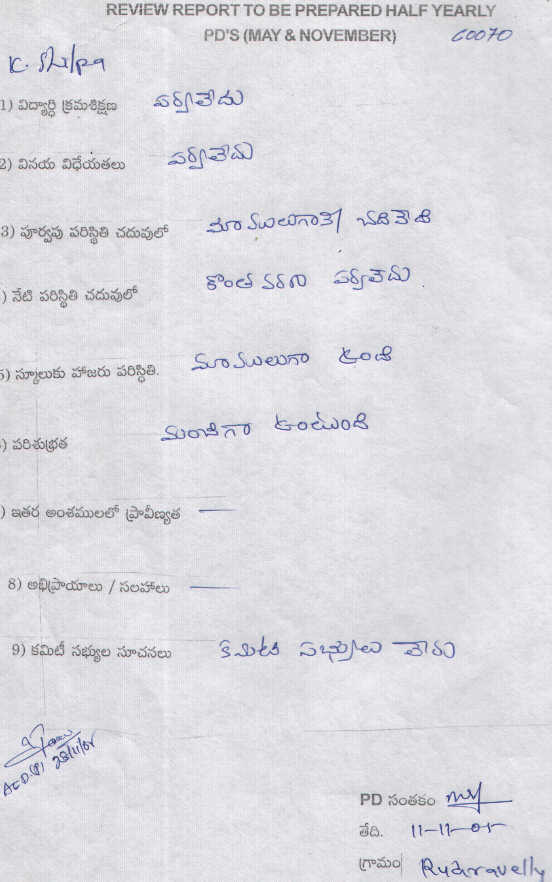 REVIEW REPORT TO BE PREPARED HALF YEARLY
PD'S (MAY & NOVEMBER) 60070
K. Shilpa
1) విద్యార్థి క్రమశిక్షణ పర్వాలేదు
2) వినయ విధేయతలు పర్వాలేదు
3) పూర్వపు పరిస్థితి చదువులో మామూలుగానే
) నేటి పరిస్థితి చదువులో కొంత వరకు పర్వాలేదు
5) స్కూలుకు హాజరు పరిస్థితి. మామూలుగా ఉంది
) పరిశుభ్రత మంచిగా ఉంటుంది
) ఇతర అంశములలో ప్రావీణ్యత —
8) అభిప్రాయాలు / సలహాలు —
9) కమిటీ సభ్యుల సూచనలు కమిటి సభ్యులు లేరు
28/11/01
PD సంతకం
తేది. 11-11-01
గ్రామం Rudravelly